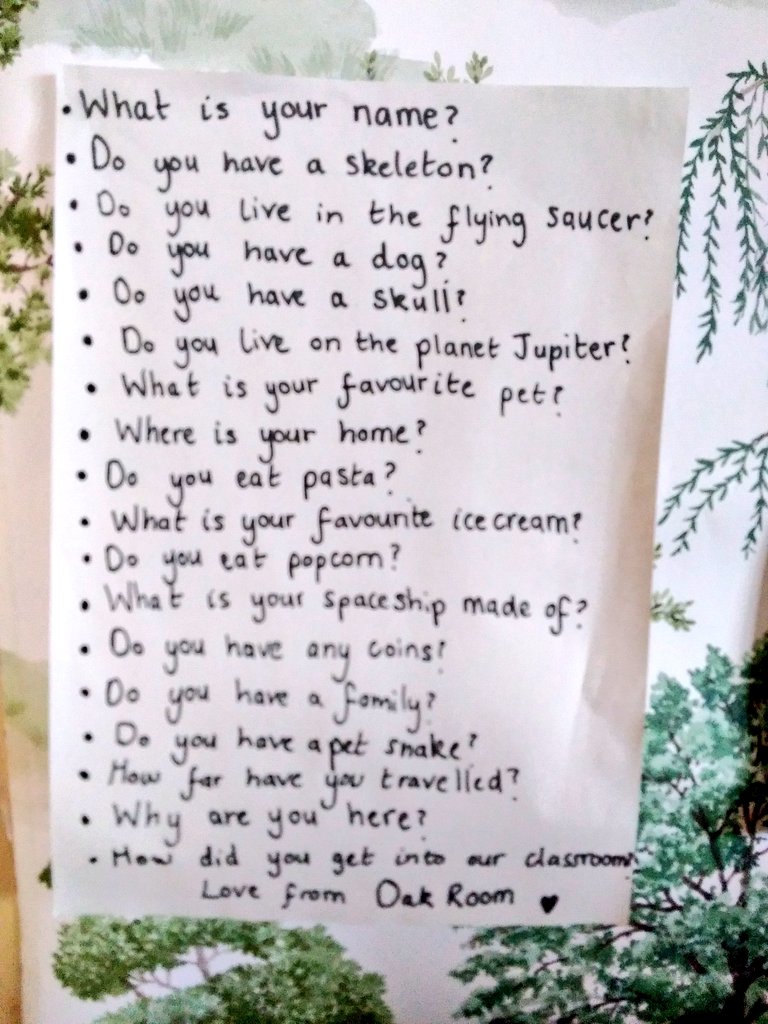 • What is your name?
• Do you have a skeleton?
• Do you live in the flying saucer?
• Do you have a dog?
• Do you have a skull?
• Do you live on the planet Jupiter?
• What is your favourite pet?
• Where is your home?
• Do you eat pasta?
• What is your favourite ice cream?
• Do you eat popcorn?
• What is your spaceship made of?
• Do you have any coins?
• Do you have a family?
• Do you have a pet snake?
• How far have you travelled?
• Why are you here?
• How did you get into our classroom?
Love from Oak Room ♥